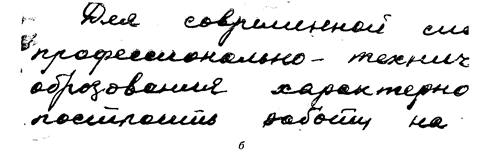 Для современной сис
профессионально-технич
оброзования характерно
построить работу на
б